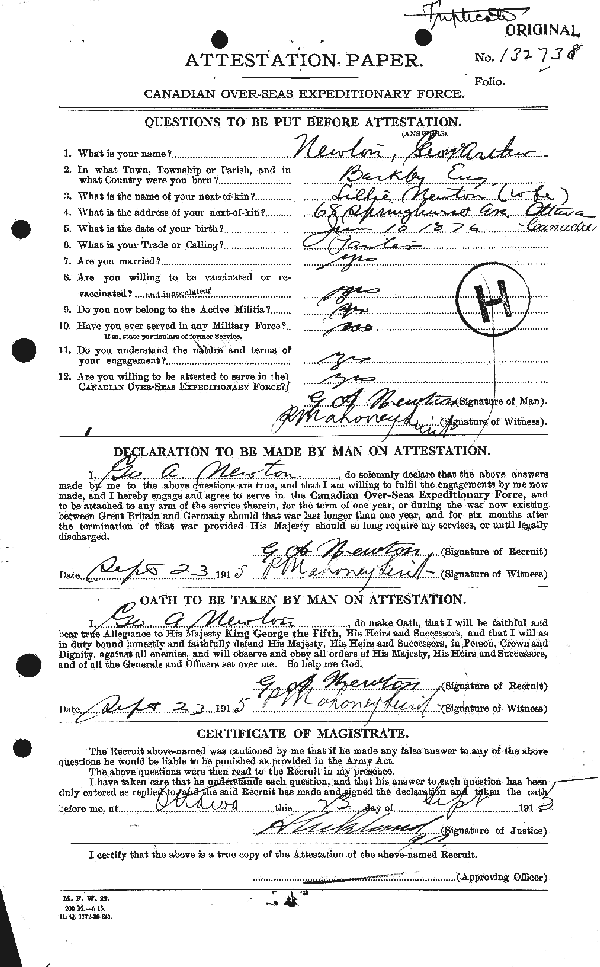 Triplicate
ORIGINAL
ATTESTATION PAPER.
No. 132738
Folio.
CANADIAN OVER-SEAS EXPEDITIONARY FORCE.
QUESTIONS TO BE PUT BEFORE ATTESTATION.
(ANSWERS).
1. What is your name? Newton, Geo Arthur
2. In what Town, Township or Parish, and in
what Country were you born? Barkby Eng
3. What is the name of your next-of-kin? Lillie Newton (wife)
4. What is the address of your next-of-kin? 68 Springhurst Ave Ottawa
Canada
5. What is the date of your birth? 10 1876
6. What is your Trade or Calling?
7. Are you married? yes
8. Are you willing to be vaccinated or re-
vaccinated? and inoculated yes
9. Do you now belong to the Active Militia?
10. Have you ever served in any Military Force?
If so, state particulars of former Service.
11. Do you understand the nature and terms of
your engagement? yes
12. Are you willing to be attested to serve in the
CANADIAN OVER-SEAS EXPEDITIONARY FORCE? yes
H
G A Newton (Signature of Man).
P Mahoney Lieut (Signature of Witness).
DECLARATION TO BE MADE BY MAN ON ATTESTATION.
I, Geo A Newton, do solemnly declare that the above answers
made by me to the above questions are true, and that I am willing to fulfil the engagements by me now
made, and I hereby engage and agree to serve in the Canadian Over-Seas Expeditionary Force, and
to be attached to any arm of the service therein, for the term of one year, or during the war now existing
between Great Britain and Germany should that war last longer than one year, and for six months after
the termination of that war provided His Majesty should so long require my services, or until legally
discharged.
G A Newton (Signature of Recruit)
Date Sept 23 1915 P Mahoney Lieut (Signature of Witness)
OATH TO BE TAKEN BY MAN ON ATTESTATION.
I, Geo A Newton, do make Oath, that I will be faithful and
bear true Allegiance to His Majesty King George the Fifth, His Heirs and Successors, and that I will as
in duty bound honestly and faithfully defend His Majesty, His Heirs and Successors, in Person, Crown and
Dignity, against all enemies, and will observe and obey all orders of His Majesty, His Heirs and Successors,
and of all the Generals and Officers set over me. So help me God.
G A Newton (Signature of Recruit)
Date Sept 23 1915 P Mahoney Lieut (Signature of Witness)
CERTIFICATE OF MAGISTRATE.
The Recruit above-named was cautioned by me that if he made any false answer to any of the above
questions he would be liable to be punished as provided in the Army Act.
The above questions were then read to the Recruit in my presence.
I have taken care that he understands each question, and that his answer to each question has been
duly entered as replied to, and the said Recruit has made and signed the declaration and taken the oath
before me, at Ottawa this 23 day of Sept 1915
(Signature of Justice)
I certify that the above is a true copy of the Attestation of the above-named Recruit.
(Approving Officer)
M. F. W. 23.
200 M.—6-15.
H. Q. 1772-39-241.